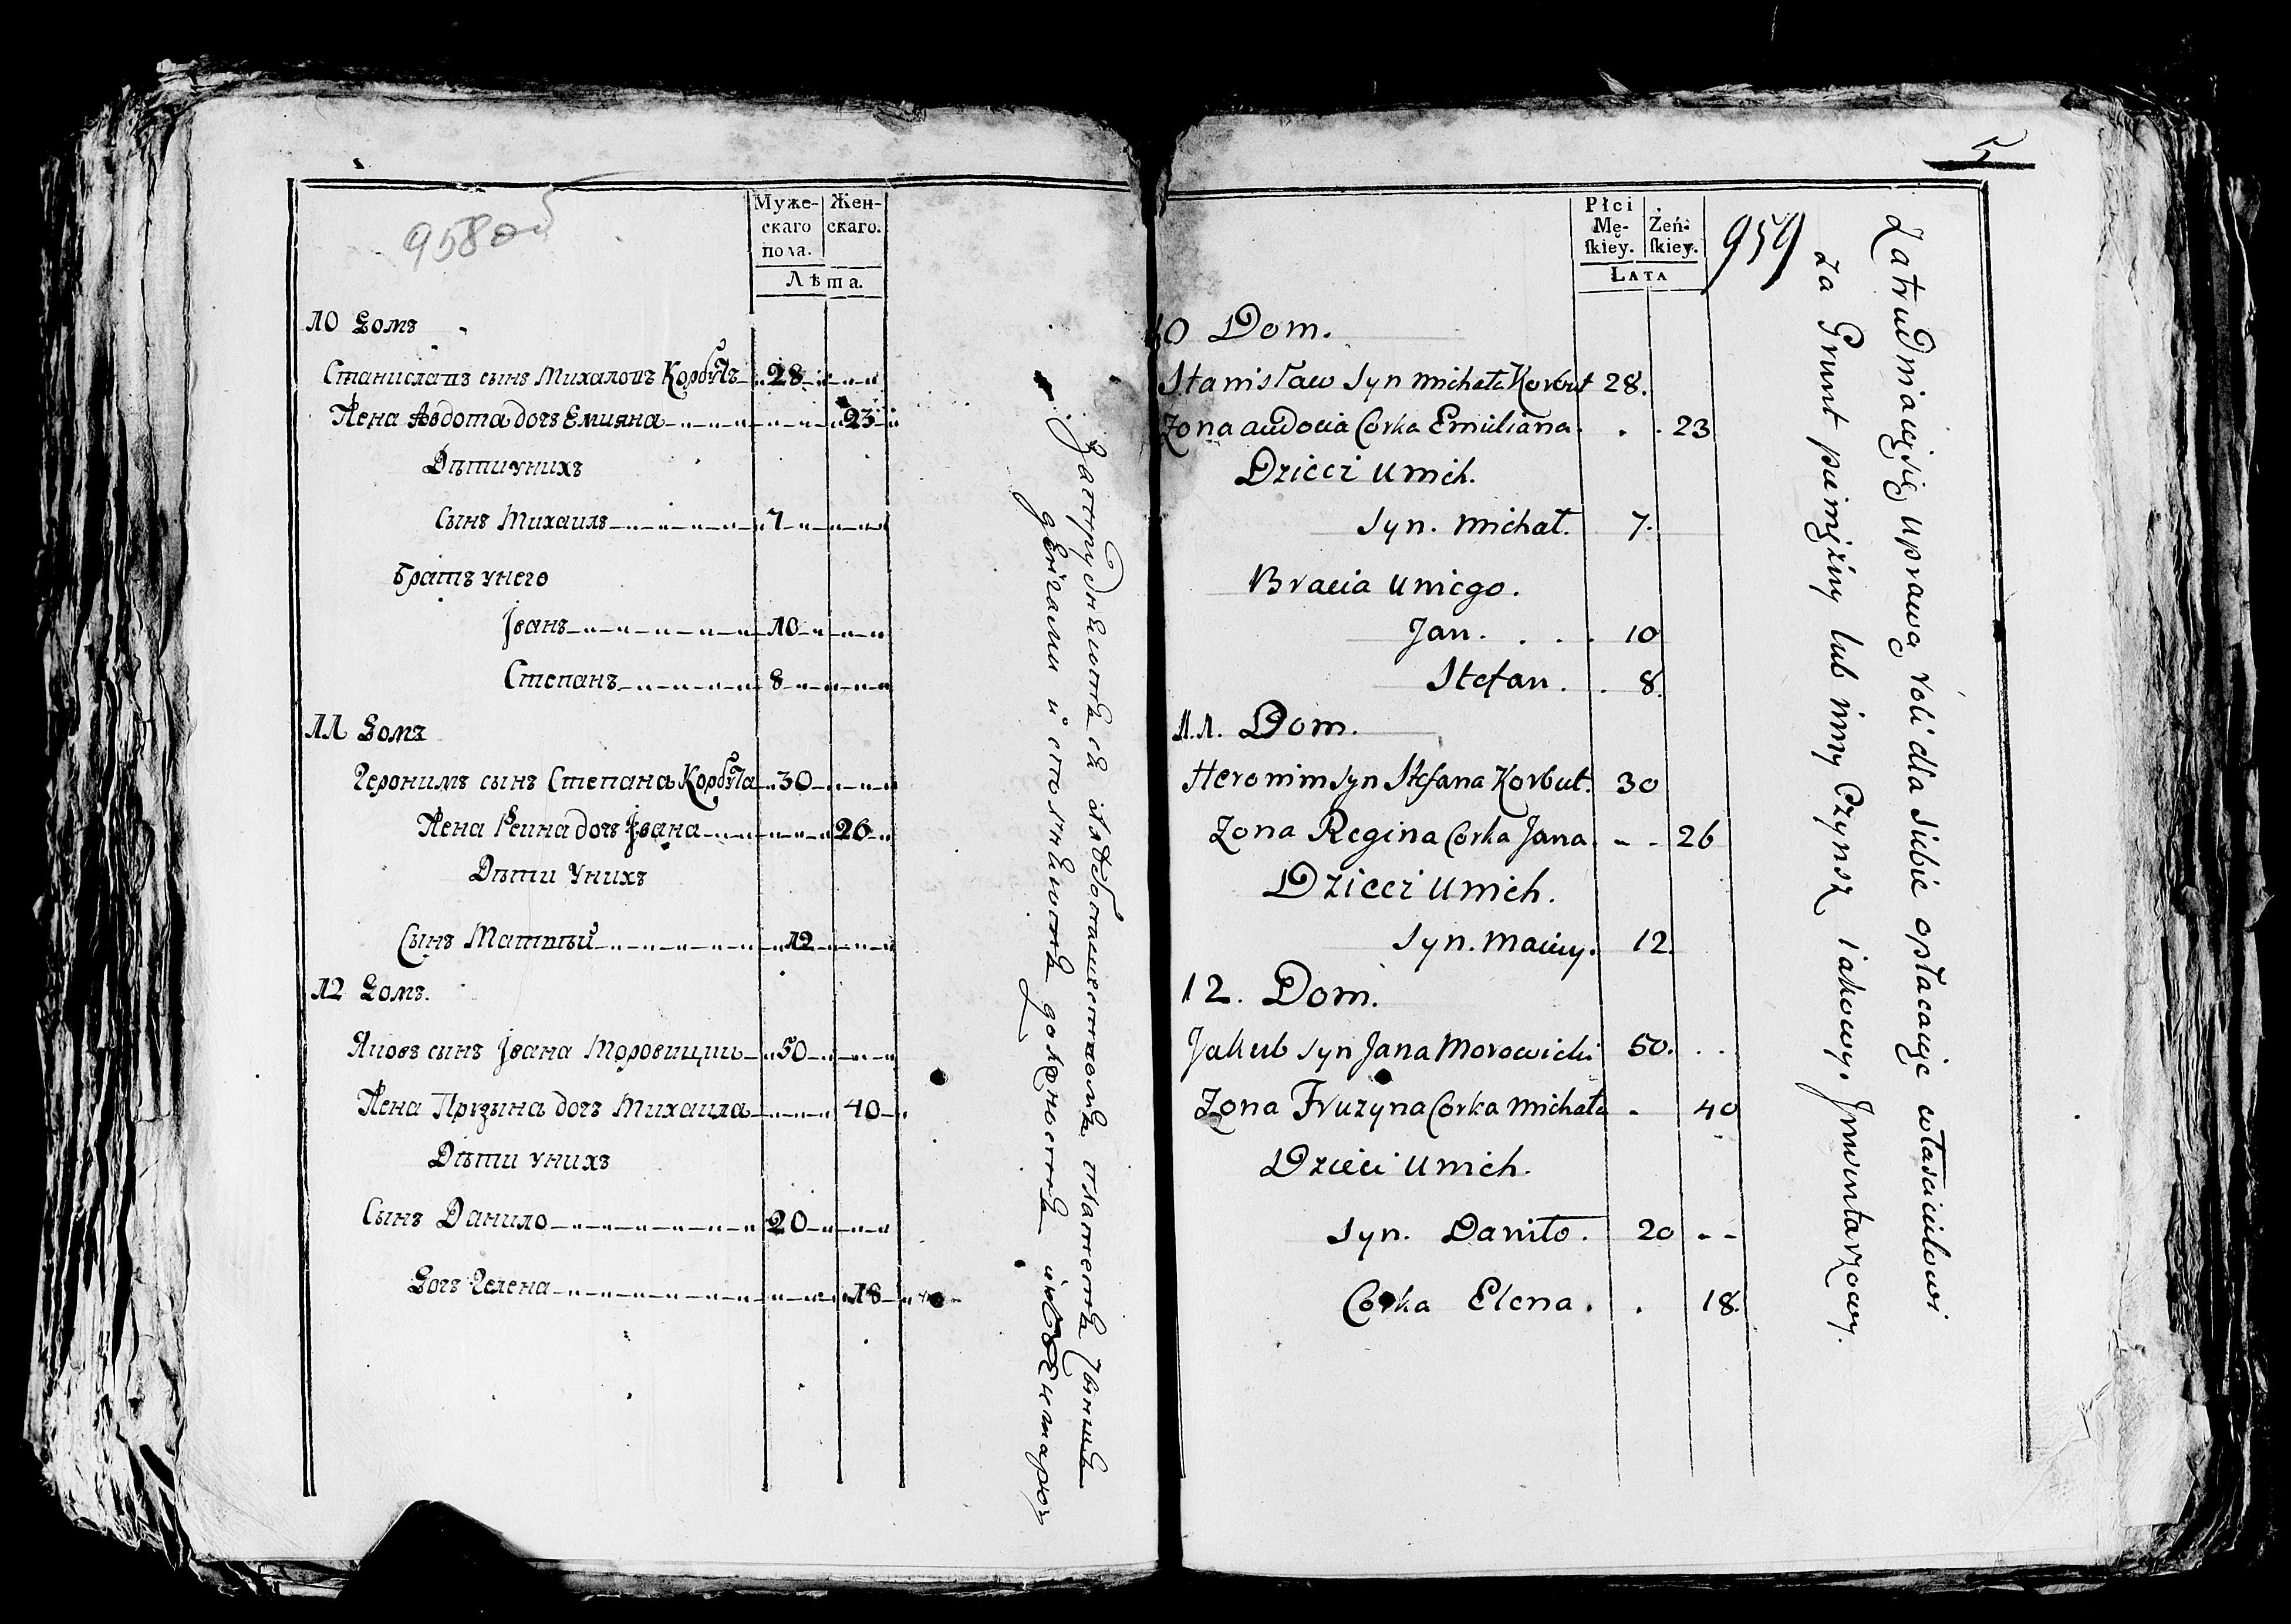 958 об
Муже-
скаго
пола.
Жен-
скаго.
Лѣта.
10 Домъ
Станиславъ сынъ Михаловъ Корбутъ 28
Жена Авдота дочъ Емияна 23
Дѣти унихъ
Сынъ Михаилъ 7
братъ унего
Іванъ 10
Степанъ 8
11 Домъ
Геронимъ сынъ Степана Корбута 30
Жена Реина дочъ Івана 26
Дѣти Унихъ
Сынъ Маттѣй 12
12 Домъ.
Яковъ сынъ Івана
Жена Прузына дочъ Михаила 40
Дѣти унихъ
Сынъ Данило 20
Дочъ Гелена 18
5
Płci
Mę-
ſkiey.
Żeń-
ſkiey.
Lata
959
10 Dom.
Stanisław Syn Michała Korbut 28.
Zona audocia Corka Emiliana. 23
Dzieci u nich.
Syn. Michał. 7.
Bracia u niego.
Jan. 10
Stefan. 8.
11. Dom.
Heronim Syn Stefana Korbut. 30
Zona Regina Corka Jana 26
Dzieci u nich.
Syn. Maciey. 12.
12. Dom.
Jakub Syn Jana Morowicki 50.
Zona Fruzyna Corka Michała 40
Dzieci u nich.
Syn. Daniło. 20
Corka Elena. 18.
Zatrudniaią się uprawą roli dla siebie opłacaiąc właścicielowi
za Grunt pieniężny lub inny Czynsz iakowy. Inwentarzowy.